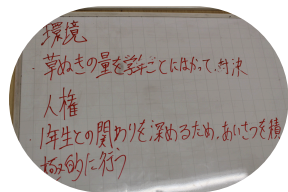 環境
・草ぬきの量を学年ごとにはかって、対決
人権
1年生との関わりを深めるため、あいさつを積
極的に行う